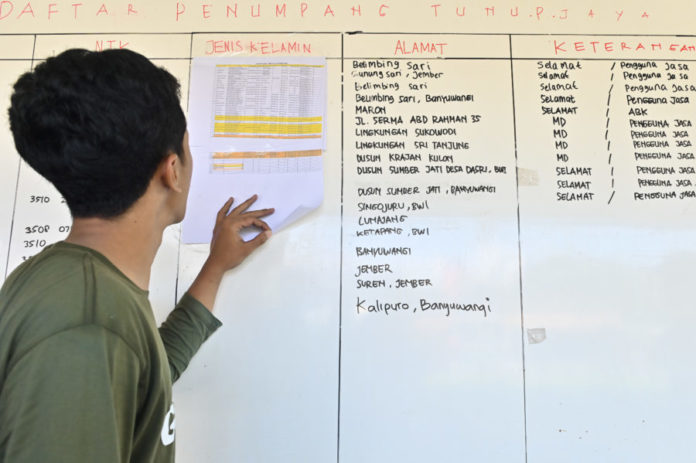 DAFTAR PENUMPANG TUNU.P.JAYA
NIK JENIS KELAMIN ALAMAT KETERANGAN
Belimbing Sari Selamat / Pengguna Jasa
Gunung sari, Jember Selamat / Pengguna Jasa
Belimbing sari Selamat / Pengguna Jasa
Belimbing Sari, Banyuwangi Selamat / Pengguna Jasa
MARON SELAMAT / ABK
JL. SERMA ABD RAHMAN 35 MD / PENGGUNA JASA
LINGKUNGAN SUKOWODI MD / PENGGUNA JASA
LINGKUNGAN SRI TANJUNG MD / PENGGUNA JASA
DUSUN KRAJAN KULON MD / PENGGUNA JASA
DUSUN SUMBER JATI DESA DASRI, BWI SELAMAT / PENGGUNA JASA
SELAMAT / PENGGUNA JASA
DUSUN SUMBER JATI, BANYUWANGI SELAMAT / PENGGUNA JASA
3510 2
SINGOJURU, BWI
LUMAJANG
3508 07
KETAPANG, BWI
3510
BANYUWANGI
JEMBER
SUREN, JEMBER
Kalipuro, Banyuwangi